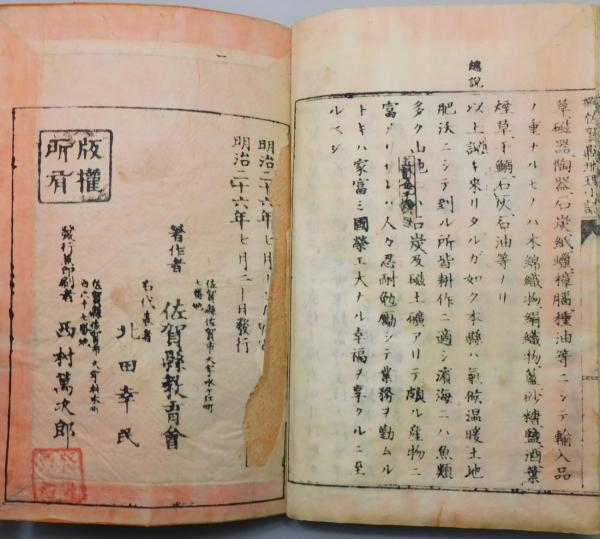 草磁器陶器石炭紙蠟樟腦種油等ニシテ輸入品
ノ重ナルモノハ木綿織物絹織物藍砂糖鹽酒葉
煙草干鰯石灰石油等ナリ
總說
以上說キ來リタルガ如ク本縣ハ氣候温暖土地
肥沃ニシテ到ル所皆耕作ニ適シ濱海ニハ魚類
多ク山地ニハ石炭及磁土礦アリテ頗ル産物ニ
富メリサレハ人々忍耐勉勵シテ業務ヲ勤ムル
トキハ家富ミ國榮エ大ナル幸福ヲ享クルニ至
ルベシ
明治二十六年七月
明治二十六年七月二十日發行
著作者 佐賀縣教育會
右代表者 北田幸民
發行兼印刷者 西村萬次郎
版權所有